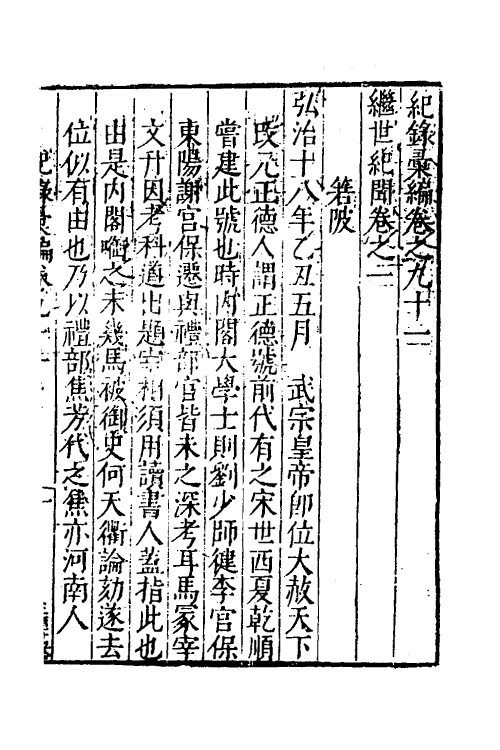 紀錄彙編卷之九十二
繼世紀聞卷之二
箬陂
弘治十八年乙丑五月　武宗皇帝卽位大赦天下
改元正德人謂正德號前代有之宋世西夏乾順
嘗建此號也時內閣大學士則劉少師健李官保
東陽謝宮保遷與禮部官皆未之深考耳馬冢宰
文升因考科道出題宰相須用讀書人蓋指此也
由是內閣啣之未幾馬被御史何天衢論劾遂去
位似有由也乃以禮部焦芳代之焦亦河南人
紀錄彙編卷九十二
一